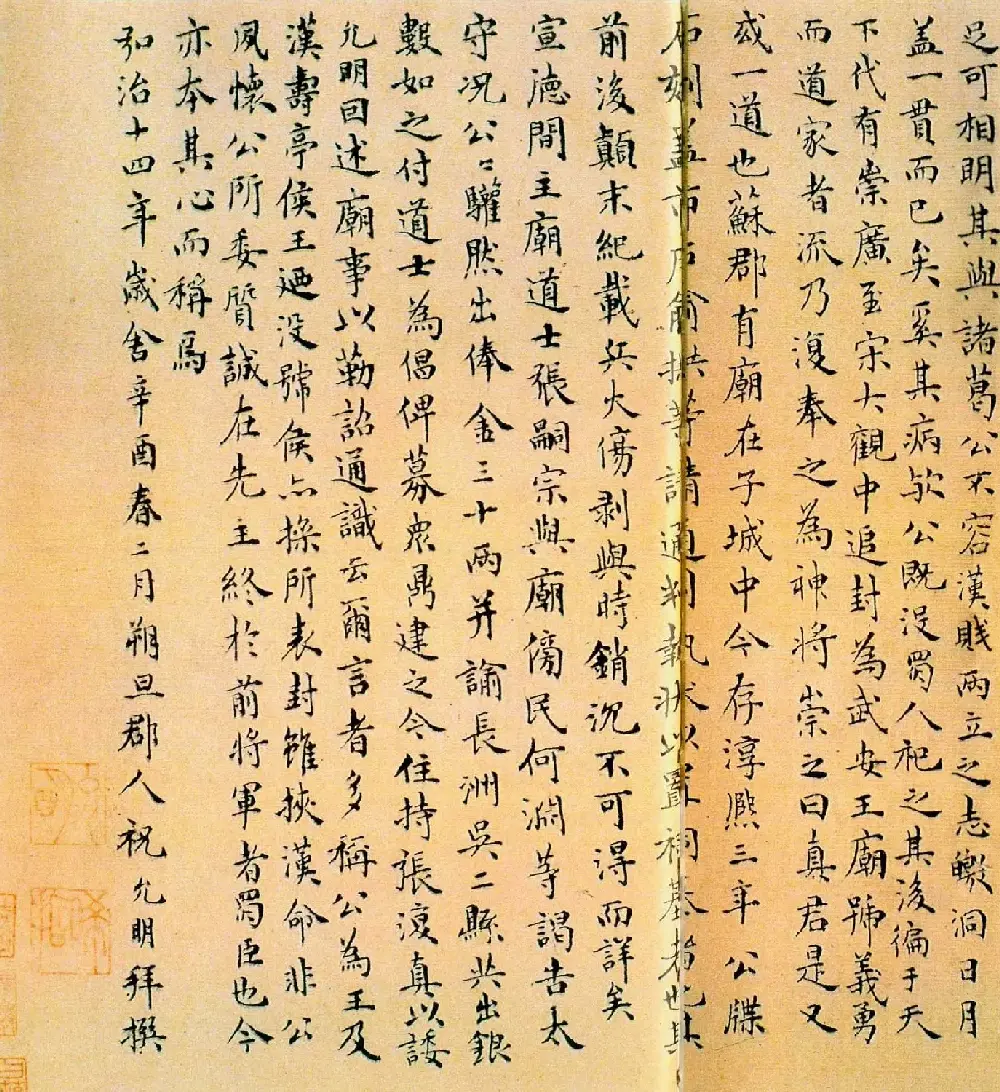 足可相明其與諸葛公不容漢賊兩立之志皦洞日月
盖一貫而已矣奚其病欤公既没蜀人祀之其後徧于天
下代有崇廣至宋大觀中追封為武安王廟號義勇
而道家者流乃復奉之為神將崇之曰真君是又
或一道也蘇郡有廟在子城中今存淳熙三年公牒
石刻盖市戶等請通判執狀以置祠基者也其
前後顛末紀載兵火傷剥與時銷沉不可得而詳矣
宣德間主廟道士張嗣宗與廟傍民何渊等謁告太
守况公公驩然出俸金三十兩并諭長洲吳二縣共出銀
數如之付道士為倡俾募衆鼎建之今住持張復真以諉
允明回述廟事以勒詔通識云爾言者多稱公為王及
漢壽亭侯王廼没號侯亦操所表封雖挾漢命非公
夙懷公所委質誠在先主終於前將軍者蜀臣也今
亦本其心而稱焉
弘治十四年歲舍辛酉春二月朔旦郡人祝允明拜撰